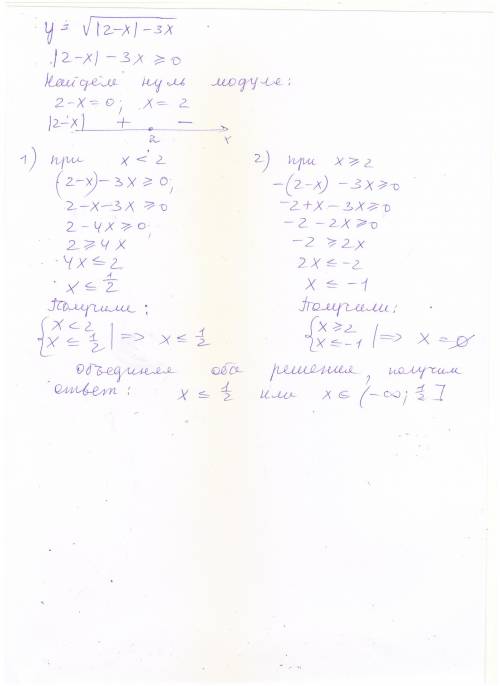 y = √|2-x|-3x
|2-x|-3x ≥ 0
Найдём нуль модуле:
2-x=0; x=2
|2-x| + -
2 x
1) при x < 2
(2-x)-3x ≥ 0;
2-x-3x ≥ 0
2-4x ≥ 0;
2 ≥ 4x
4x ≤ 2
x ≤ 1/2
Получили:
{x < 2
{x ≤ 1/2 | => x ≤ 1/2
2) при x ≥ 2
-(2-x) -3x ≥ 0
-2+x-3x ≥ 0
-2-2x ≥ 0
-2 ≥ 2x
2x ≤ -2
x ≤ -1
Получили:
{x ≥ 2
{x ≤ -1 | => x = ∅
объединяя оба решения, получим
ответ: x ≤ 1/2 или x ∈ (-∞; 1/2]